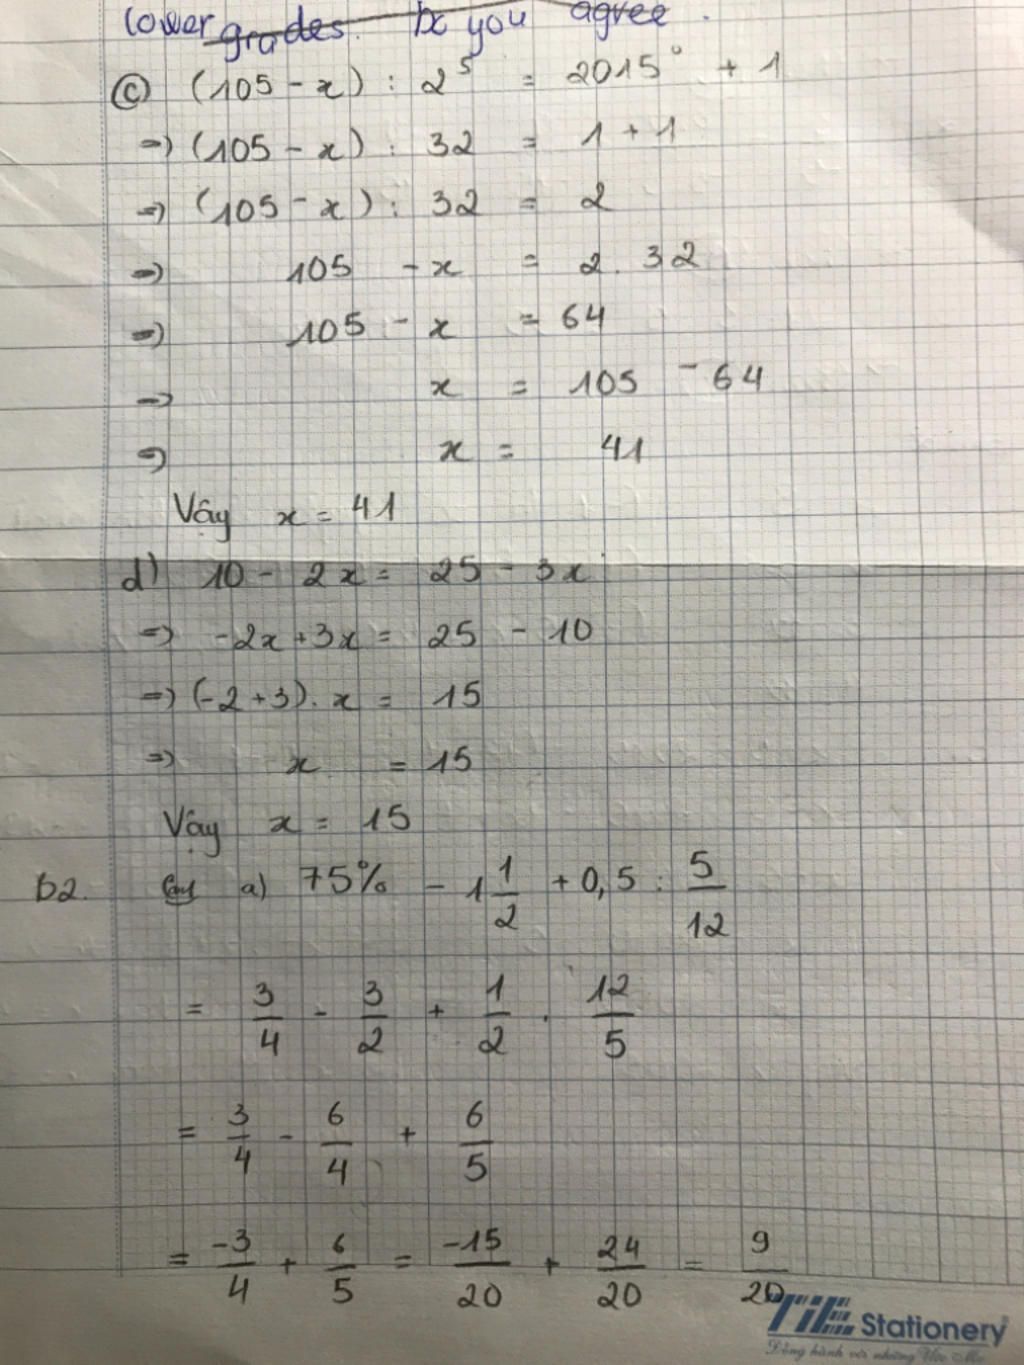 lower grades. Do you agree.
c) (105 - x) : 2⁵ = 2015⁰ + 1
=> (105 - x) : 32 = 1 + 1
=> (105 - x) : 32 = 2
=> 105 - x = 2 . 32
=> 105 - x = 64
=> x = 105 - 64
=> x = 41
Vậy x = 41
d) 10 - 2x = 25 - 3x
=> -2x + 3x = 25 - 10
=> (-2 + 3) . x = 15
=> x = 15
Vậy x = 15
b2. a) 75% - 1 1/2 + 0,5 : 5/12
= 3/4 - 3/2 + 1/2 . 12/5
= 3/4 - 6/4 + 6/5
= -3/4 + 6/5 = -15/20 + 24/20 = 9/20
TiE Stationery
Đồng hành với những